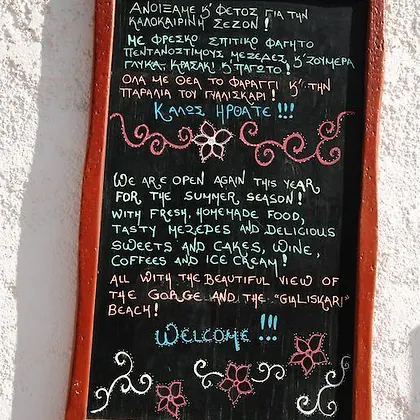 ΑΝΟΙΞΑΜΕ Κ' ΦΕΤΟΣ ΓΙΑ ΤΗΝ
ΚΑΛΟΚΑΙΡΙΝΗ ΣΕΖΟΝ!
ΜΕ ΦΡΕΣΚΟ ΣΠΙΤΙΚΟ ΦΑΓΗΤΟ
ΠΕΝΤΑΝΟΣΤΙΜΟΥΣ ΜΕΖΕΔΕΣ, Κ' ΖΟΥΜΕΡΑ
ΓΛΥΚΑ, ΚΡΑΣΑΚΙ Κ' ΠΑΓΩΤΟ!
ΟΛΑ ΜΕ ΘΕΑ ΤΟ ΦΑΡΑΓΓΙ Κ' ΤΗΝ
ΠΑΡΑΛΙΑ ΤΟΥ ΓΥΑΛΙΣΚΑΡΙ!
ΚΑΛΩΣ ΗΡΘΑΤΕ !!!
WE ARE OPEN AGAIN THIS YEAR
FOR THE SUMMER SEASON!
WITH FRESH, HOMEMADE FOOD,
TASTY MEZEDES AND DELICIOUS
SWEETS AND CAKES, WINE,
COFFEES AND ICE CREAM!
ALL WITH THE BEAUTIFUL VIEW OF
THE GORGE AND THE "GIALISKARI"
BEACH!
WELCOME !!!